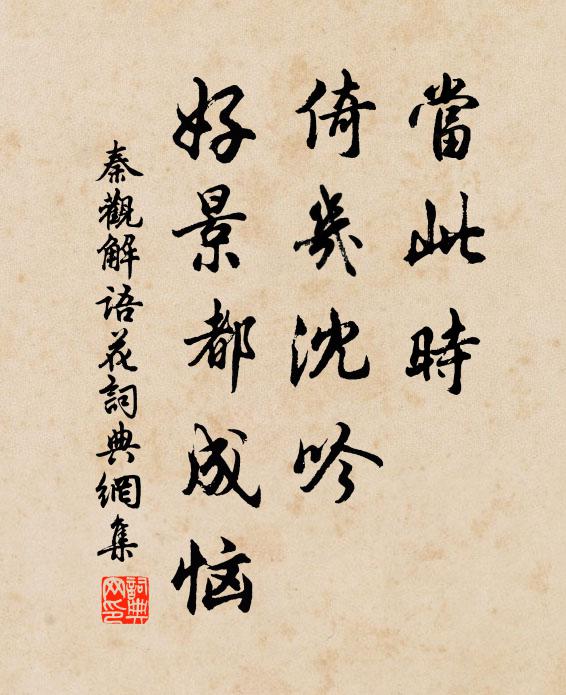 當此時
倚幾沈吟
好景都成惱
秦觀解語花詞典網集
詞典網印